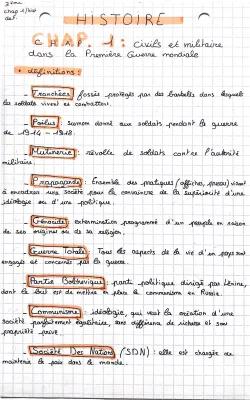 3ème
chap 1/hist
def.
HISTOIRE
CHAP. 1: civils et militaire
dans la Première Guerre mondiale
• définitions:
- Tranchées: fossés protégés par des barbelés dans lesquels
les soldats vivent et combattent.
- Poilus: surnom donné aux soldats pendant la guerre
de 1914-1918.
- Mutinerie: révolte de soldats contre l'autorité
militaire.
- Propagande: Ensemble des pratiques (affiches, presse) visant
à encadrer une société pour la convaincre de la supériorité d'une
idéologie ou d'une politique.
- Génocide: extermination programmé d'un peuple en raison
de ses origines ou de sa religion.
- Guerre Totale: Tous les aspects de la vie d'un pays sont
engagés et concernés par la guerre.
- Partie Bolchévique: parti politique dirigé par Lénine,
dont le but est de mettre en place le communisme en Russie.
- Communisme: idéologie, qui veut la création d'une
société parfaitement égalitaire, sans différence de richesse et sans
propriété privé.
- Société Des Nations (SDN): elle est chargée de
maintenir la paix dans le monde.